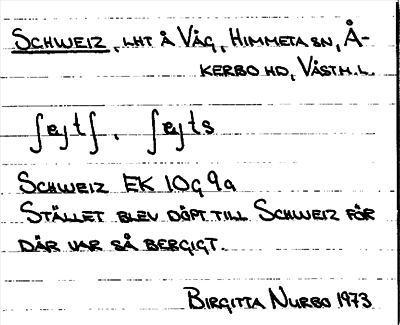 SCHWEIZ, LHT Å VÅG, HIMMETA SN, Å-
KERBO HD, VÄSTM.L.
ʃɐjtʃ. ʃɐjts
SCHWEIZ EK 10G 9a
STÄLLET BLEV DÖPT TILL SCHWEIZ FÖR
DÄR VAR SÅ BERGIGT.
BIRGITTA NURBO 1973